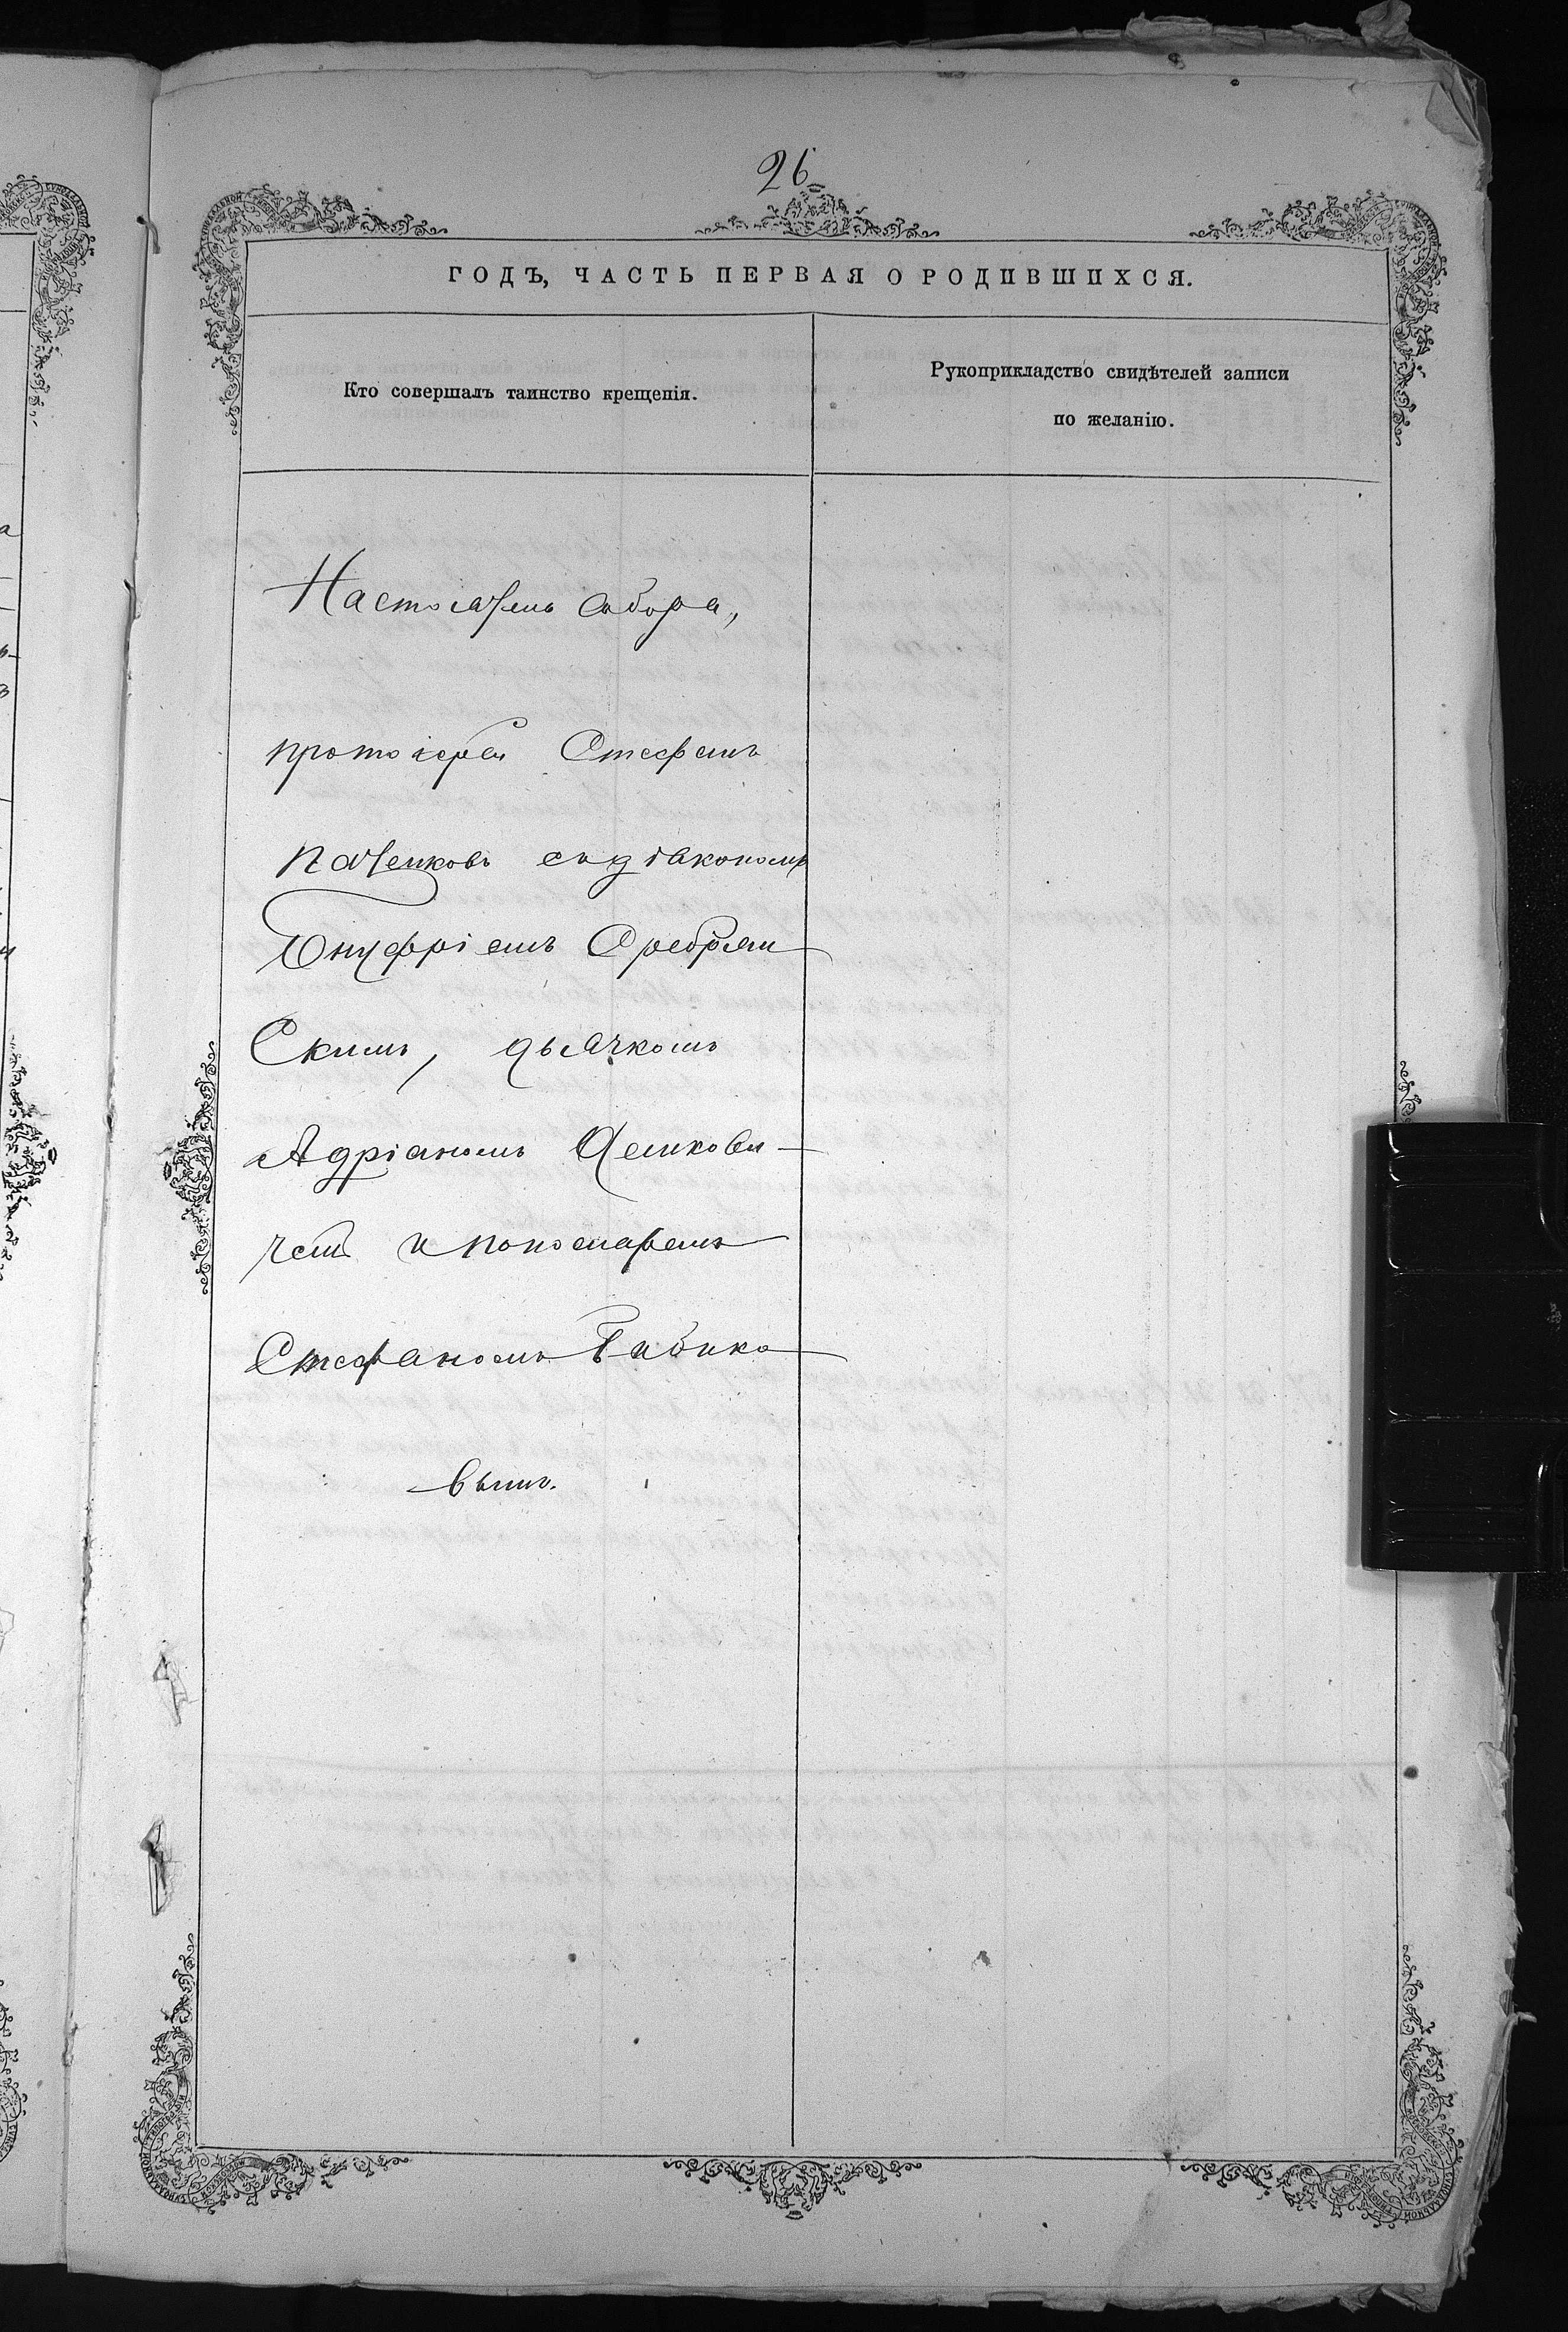 26
ГОДЪ, ЧАСТЬ ПЕРВАЯ О РОДИВШИХСЯ.
Кто совершалъ таинство крещенія.
Рукоприкладство свидѣтелей записи
по желанію.
Настоятель собора,
протоіерей Стефанъ
Паченковъ съ діакономъ
Онуфріемъ Сребрян
скимъ, дьячкомъ
Адріаномъ
чемъ и пономаремъ
Стефаномъ Бабико
вымъ.